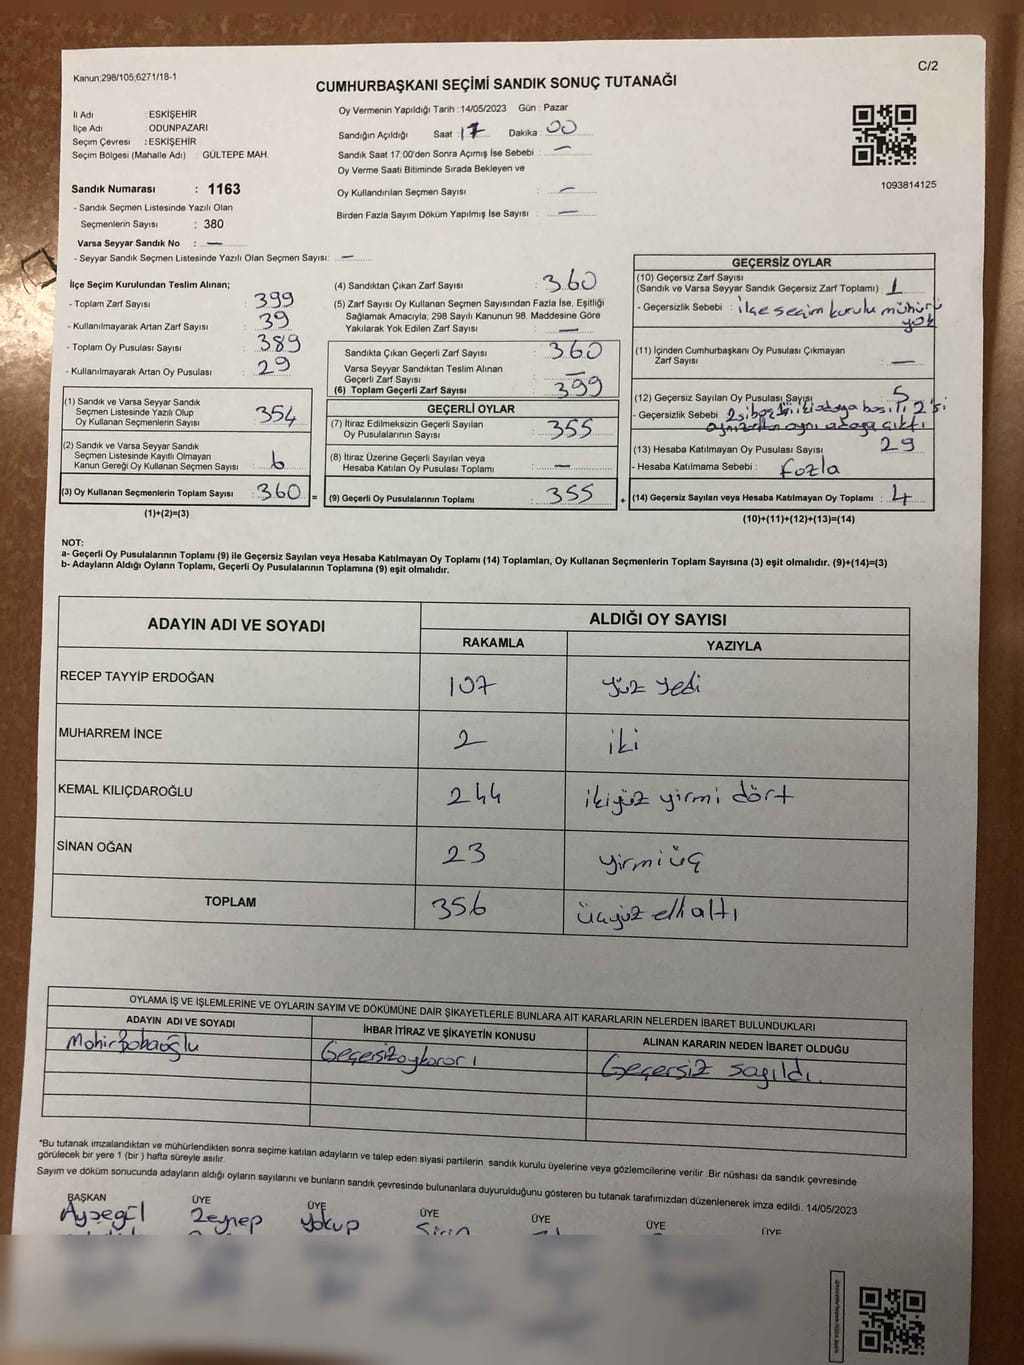 Kanun;298/105;6271/18-1
C/2
CUMHURBAŞKANI SEÇİMİ SANDIK SONUÇ TUTANAĞI
İl Adı : ESKİŞEHİR
İlçe Adı : ODUNPAZARI
Seçim Çevresi : ESKİŞEHİR
Seçim Bölgesi (Mahalle Adı) : GÜLTEPE MAH.
Sandık Numarası : 1163
- Sandık Seçmen Listesinde Yazılı Olan
Seçmenlerin Sayısı : 380
Varsa Seyyar Sandık No : —
- Seyyar Sandık Seçmen Listesinde Yazılı Olan Seçmen Sayısı: —
Oy Vermenin Yapıldığı Tarih : 14/05/2023 Gün : Pazar
Sandığın Açıldığı Saat : 17 Dakika : 00
Sandık Saat 17:00'den Sonra Açımış İse Sebebi : —
Oy Verme Saati Bitiminde Sırada Bekleyen ve
Oy Kullandırılan Seçmen Sayısı : —
Birden Fazla Sayım Döküm Yapılmış İse Sayısı : —
1093814125
İlçe Seçim Kurulundan Teslim Alınan;
- Toplam Zarf Sayısı : 399
- Kullanılmayarak Artan Zarf Sayısı : 39
- Toplam Oy Pusulası Sayısı : 389
- Kullanılmayarak Artan Oy Pusulası : 29
(1) Sandık ve Varsa Seyyar Sandık
Seçmen Listesinde Yazılı Olup
Oy Kullanan Seçmenlerin Sayısı : 354
(2) Sandık ve Varsa Seyyar Sandık
Seçmen Listesinde Kayıtlı Olmayan
Kanun Gereği Oy Kullanan Seçmen Sayısı : 6
(3) Oy Kullanan Seçmenlerin Toplam Sayısı : 360 =
(1)+(2)=(3)
(4) Sandıktan Çıkan Zarf Sayısı : 360
(5) Zarf Sayısı Oy Kullanan Seçmen Sayısından Fazla İse, Eşitliği
Sağlamak Amacıyla; 298 Sayılı Kanunun 98. Maddesine Göre
Yakılarak Yok Edilen Zarf Sayısı : —
Sandıkta Çıkan Geçerli Zarf Sayısı : 360
Varsa Seyyar Sandıktan Teslim Alınan
Geçerli Zarf Sayısı : —
(6) Toplam Geçerli Zarf Sayısı : 399
GEÇERLİ OYLAR
(7) İtiraz Edilmeksizin Geçerli Sayılan
Oy Pusulalarının Sayısı : 355
(8) İtiraz Üzerine Geçerli Sayılan veya
Hesaba Katılan Oy Pusulası Toplamı : —
(9) Geçerli Oy Pusulalarının Toplamı : 355 +
GEÇERSİZ OYLAR
(10) Geçersiz Zarf Sayısı
(Sandık ve Varsa Seyyar Sandık Geçersiz Zarf Toplamı) : 1
- Geçersizlik Sebebi : ilçe seçim kurulu mühürü
yok
(11) İçinden Cumhurbaşkanı Oy Pusulası Çıkmayan
Zarf Sayısı : —
(12) Geçersiz Sayılan Oy Pusulası Sayısı : 5
- Geçersizlik Sebebi 2si boş iki adaya basılı 2'si
aynı zarftan aynı adaya çıktı
(13) Hesaba Katılmayan Oy Pusulası Sayısı : 29
- Hesaba Katılmama Sebebi : fazla
(14) Geçersiz Sayılan veya Hesaba Katılmayan Oy Toplamı : 4
(10)+(11)+(12)+(13)=(14)
NOT:
a- Geçerli Oy Pusulalarının Toplamı (9) ile Geçersiz Sayılan veya Hesaba Katılmayan Oy Toplamı (14) Toplamları, Oy Kullanan Seçmenlerin Toplam Sayısına (3) eşit olmalıdır. (9)+(14)=(3)
b- Adayların Aldığı Oyların Toplamı, Geçerli Oy Pusulalarının Toplamına (9) eşit olmalıdır.
ADAYIN ADI VE SOYADI ALDIĞI OY SAYISI
RAKAMLA YAZIYLA
RECEP TAYYİP ERDOĞAN 107 yüz yedi
MUHARREM İNCE 2 iki
KEMAL KILIÇDAROĞLU 244 ikiyüz yirmi dört
SİNAN OĞAN 23 yirmi üç
TOPLAM 356 üçyüz elli altı
OYLAMA İŞ VE İŞLEMLERİNE VE OYLARIN SAYIM VE DÖKÜMÜNE DAİR ŞİKAYETLERLE BUNLARA AİT KARARLARIN NELERDEN İBARET BULUNDUKLARI
ADAYIN ADI VE SOYADI İHBAR İTİRAZ VE ŞİKAYETİN KONUSU ALINAN KARARIN NEDEN İBARET OLDUĞU
Mahir Babaoğlu Geçersiz oy kararı Geçersiz sayıldı.
*Bu tutanak imzalandıktan ve mühürlendikten sonra seçime katılan adayların ve talep eden siyasi partilerin sandık kurulu üyelerine veya gözlemcilerine verilir .Bir nüshası da sandık çevresinde
görülecek bir yere 1 (bir ) hafta süreyle asılır.
Sayım ve döküm sonucunda adayların aldığı oyların sayılarını ve bunların sandık çevresinde bulunanlara duyurulduğunu gösteren bu tutanak tarafımızdan düzenlenerek imza edildi. 14/05/2023
BAŞKAN ÜYE ÜYE ÜYE ÜYE ÜYE ÜYE
Ayşegül Zeynep Yakup